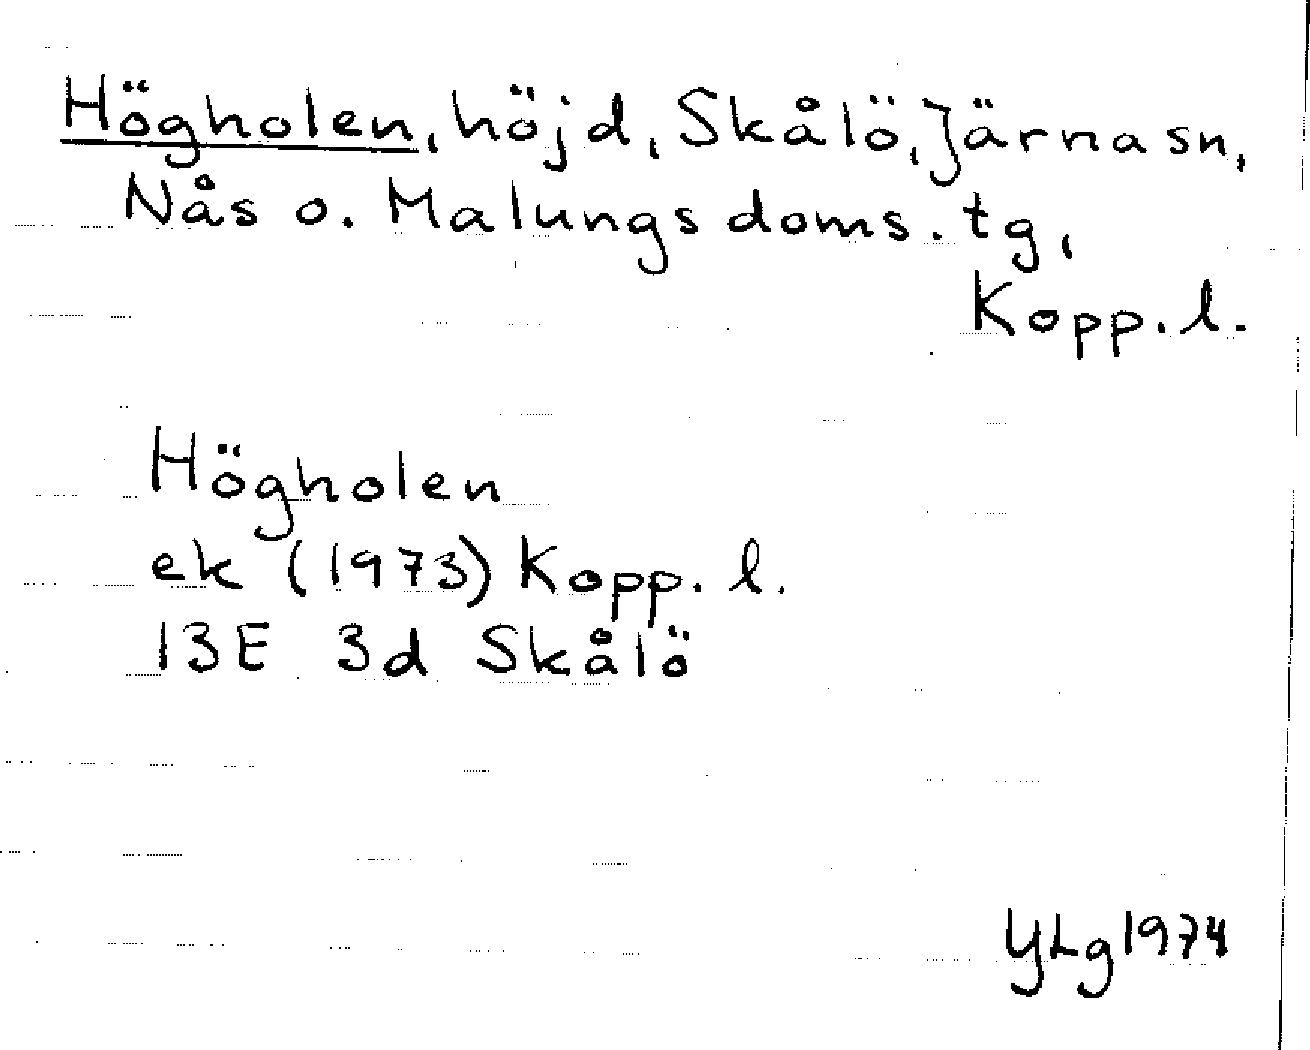 Högholen, höjd, Skålö, Järna sn,
Nås o. Malungs doms. tg,
Kopp. l.
Högholen
ek (1973) Kopp. l.
13E 3d Skålö
YLg 1974